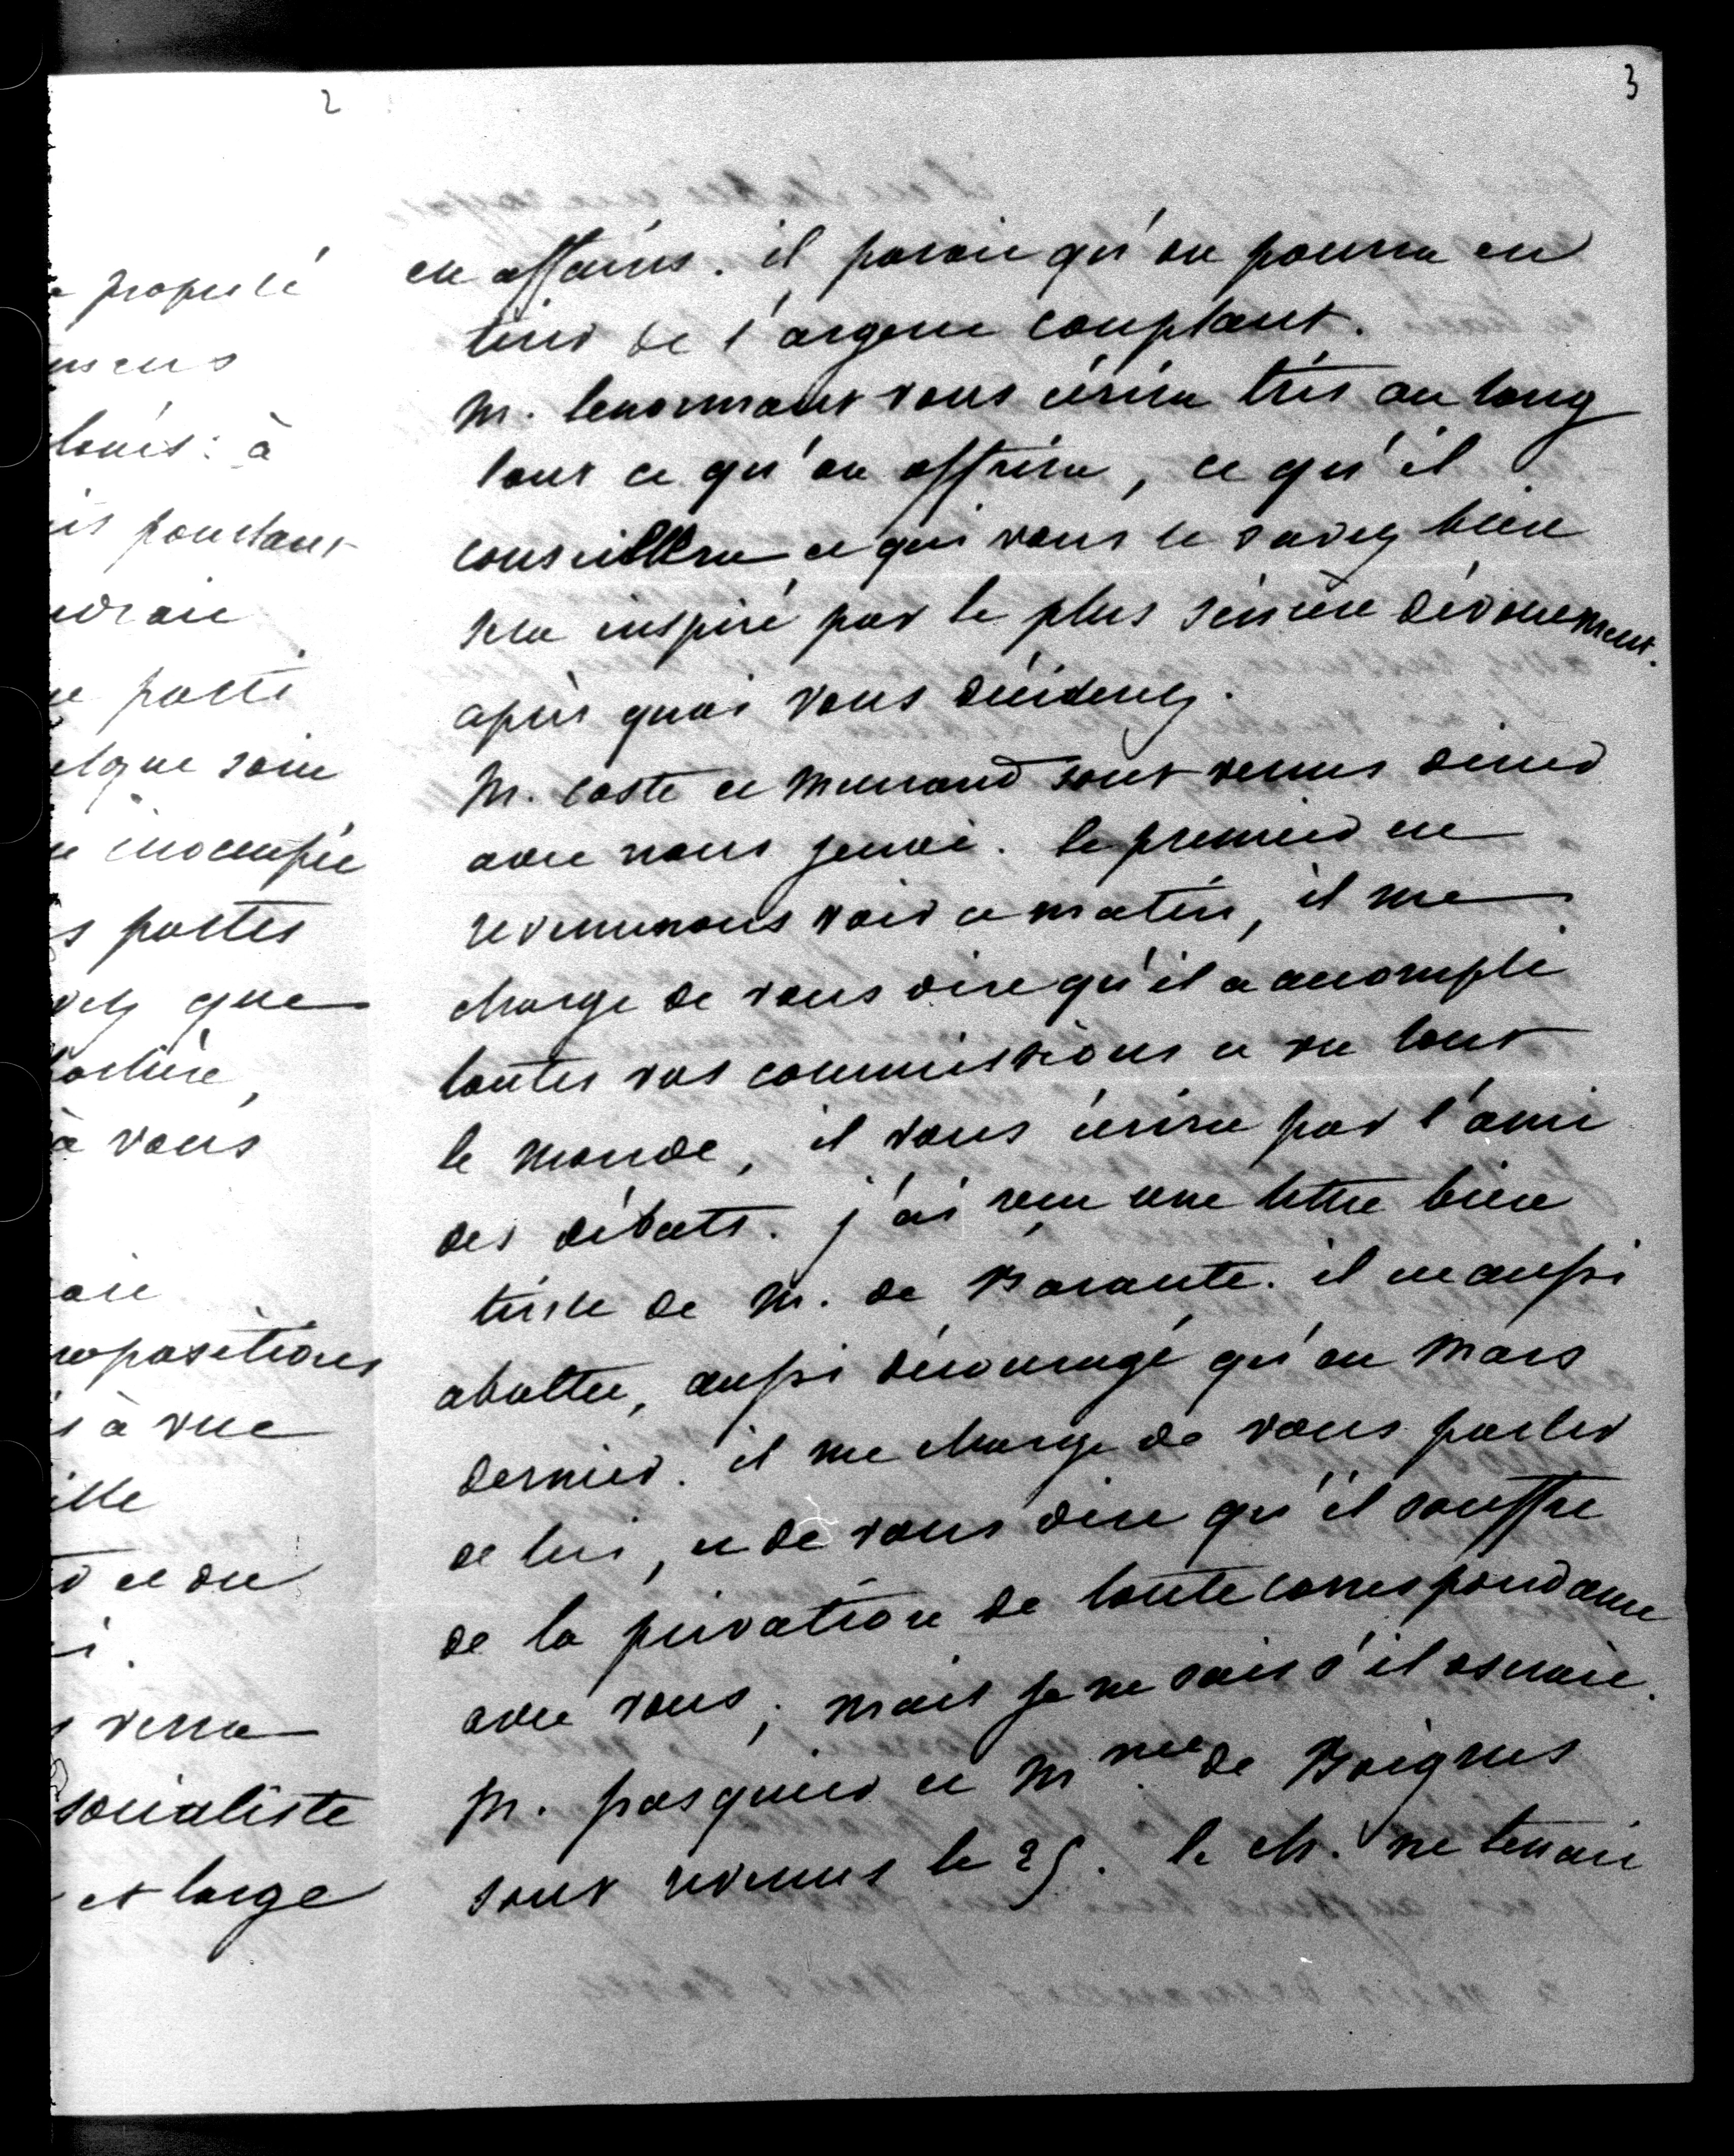 2
propriété
à
pourtant
parti
inoccupée
portes
que
à vous
propositions
à vue
et du
verra
socialiste
et large
3
en affaires. il parait qu'on pourra en
tirer de l'argent comptant.
M. lenormant vous écrira très au long
tout ce qu'on offrira, ce qu'il
conseillera et qui vous le savez bien
sera inspiré par le plus sincère dévouement.
après quoi vous déciderez.
M. coste et Mallac sont venus diner
avec nous jeudi. le premier est
revenu nous voir ce matin, il me
charge de vous dire qu'il a accompli
toutes vos commissions a vu tout
le monde, il vous écrira par l'ami
des débats. j'ai reçu une lettre bien
triste de M. de Barante. il est aussi
abattu, aussi découragé qu'en Mars
dernier. il me charge de vous parler
de lui, et de vous dire qu'il souffre
de la privation de toute correspondance
avec vous; mais je ne sais s'il oserait.
M. pasquier et Mme de Boigne
sont revenus le 25. le ch. ne tenait